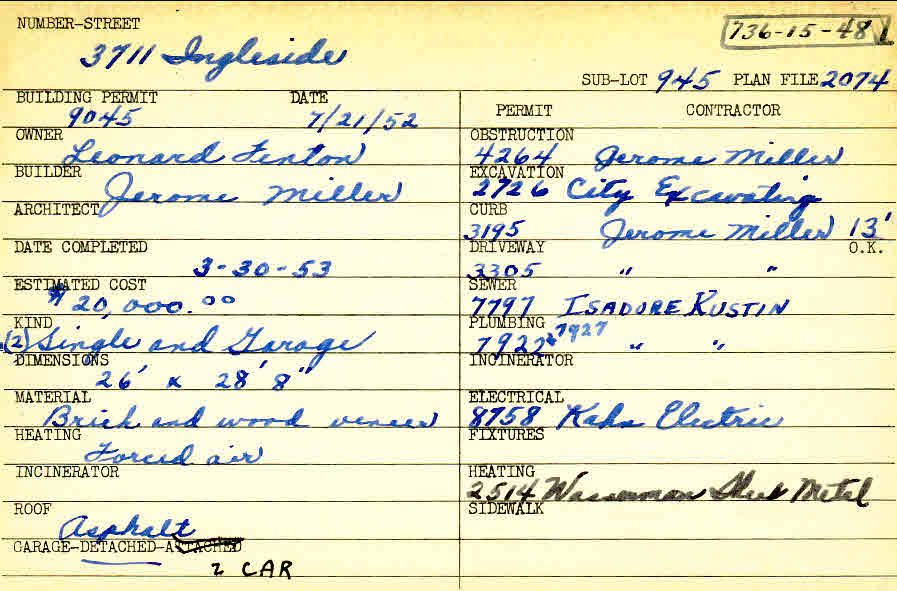 NUMBER-STREET
736-15-48
3711 Ingleside
SUB-LOT 945 PLAN FILE 2074
BUILDING PERMIT DATE
9045 7/21/52
OWNER
Leonard Fenton
BUILDER
Jerome Miller
ARCHITECT
DATE COMPLETED
3-30-53
ESTIMATED COST
$20,000.00
KIND
(2) Single and Garage
DIMENSIONS
26' x 28' 8"
MATERIAL
Brick and wood veneer
HEATING
Forced air
INCINERATOR
ROOF
Asphalt
GARAGE-DETACHED-ATTACHED
2 CAR
PERMIT CONTRACTOR
OBSTRUCTION
4264 Jerome Miller
EXCAVATION
2726 City Excavating
CURB
3195 Jerome Miller 13'
DRIVEWAY O.K.
3305 " "
SEWER
7797 ISADORE KUSTIN
PLUMBING
7922 & 7927 " "
INCINERATOR
ELECTRICAL
8758 Kahn Electric
FIXTURES
HEATING
2514 Wasserman Sheet Metal
SIDEWALK